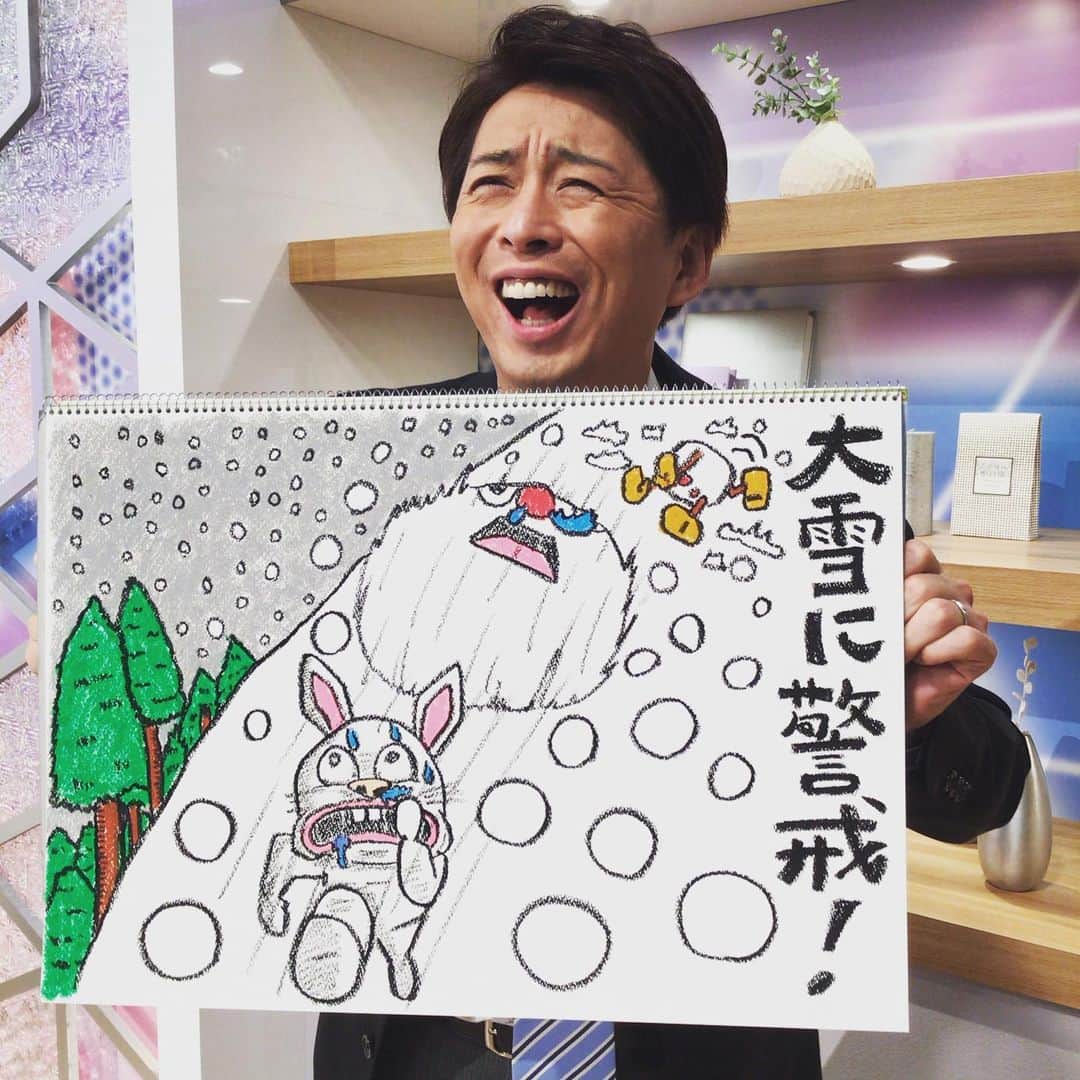 大雪に警戒！